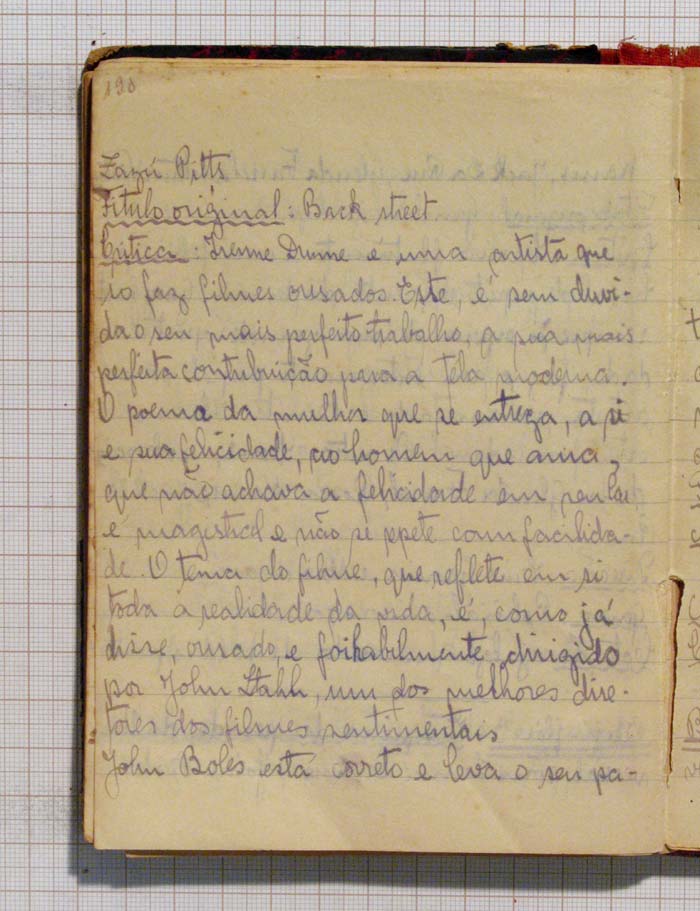 198
Zazú Pitts
Titulo original: Back street
Critica: Irenne Dunne é uma artista que
so faz filmes ousados. Este, é sem duvi-
da o seu mais perfeito trabalho, a sua mais
perfeita contribuição para a tela moderna.
O poema da mulher que se entrega, a si
e sua felicidade, ao homem que ama,
que não achava a felicidade em seu lar
é magistral e não se repete com facilida-
de. O tema do filme, que reflete em si
toda a realidade da vida, é, como já
disse, ousado, e foi habilmente dirigido
por John Stahh, um dos melhores dire-
tores dos filmes sentimentais
John Boles está correto e leva o seu pa-